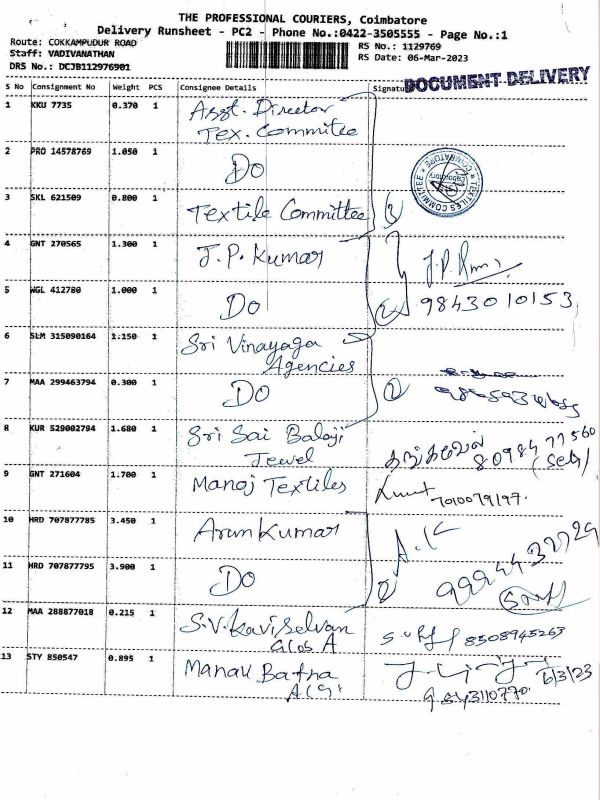 THE PROFESSIONAL COURIERS, Coimbatore
Delivery Runsheet - PC2 - Phone No.:0422-3505555 - Page No.:1
Route: COKKAMPUDUR ROAD
Staff: VADIVANATHAN
DRS No.: DCJB112976901
RS No.: 1129769
RS Date: 06-Mar-2023
DOCUMENT DELIVERY
S No Consignment No Weight PCS Consignee Details Signatu
1 KKU 7735 0.370 1 Asst. Director
Tex. Committee
2 PRO 14578769 1.050 1 DO
TEXTILES COMMITTEE
COIMBATORE
3 SKL 621509 0.800 1 Textile Committee 3
4 GNT 270565 1.300 1 J.P. Kumar
5 WGL 412780 1.000 1 DO 2 9843010153
6 SLM 315090164 1.150 1 Sri Vinayaga
Agencies
7 MAA 299463794 0.300 1 DO 2
8 KUR 529002794 1.680 1 Sri Sai Balaji
Jewel
தங்கவேல் 80984 77560
(Self)
9 GNT 271604 1.700 1 Manoj Textiles
7010079197.
10 HRD 707877785 3.450 1 Arun Kumar A.K
11 HRD 707877795 3.900 1 DO 2
12 MAA 288877018 0.215 1 S.V. Kaviselvan
8508945263
13 STY 850547 0.895 1 Manav Bafna
6/3/23